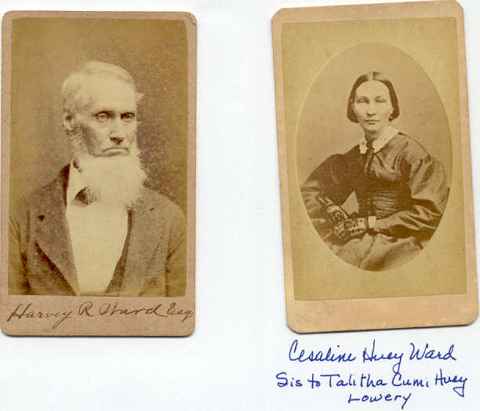 Harvey R Ward Esq
Cesaline Huey Ward
Sis to Talitha Cumi Huey
Lowery